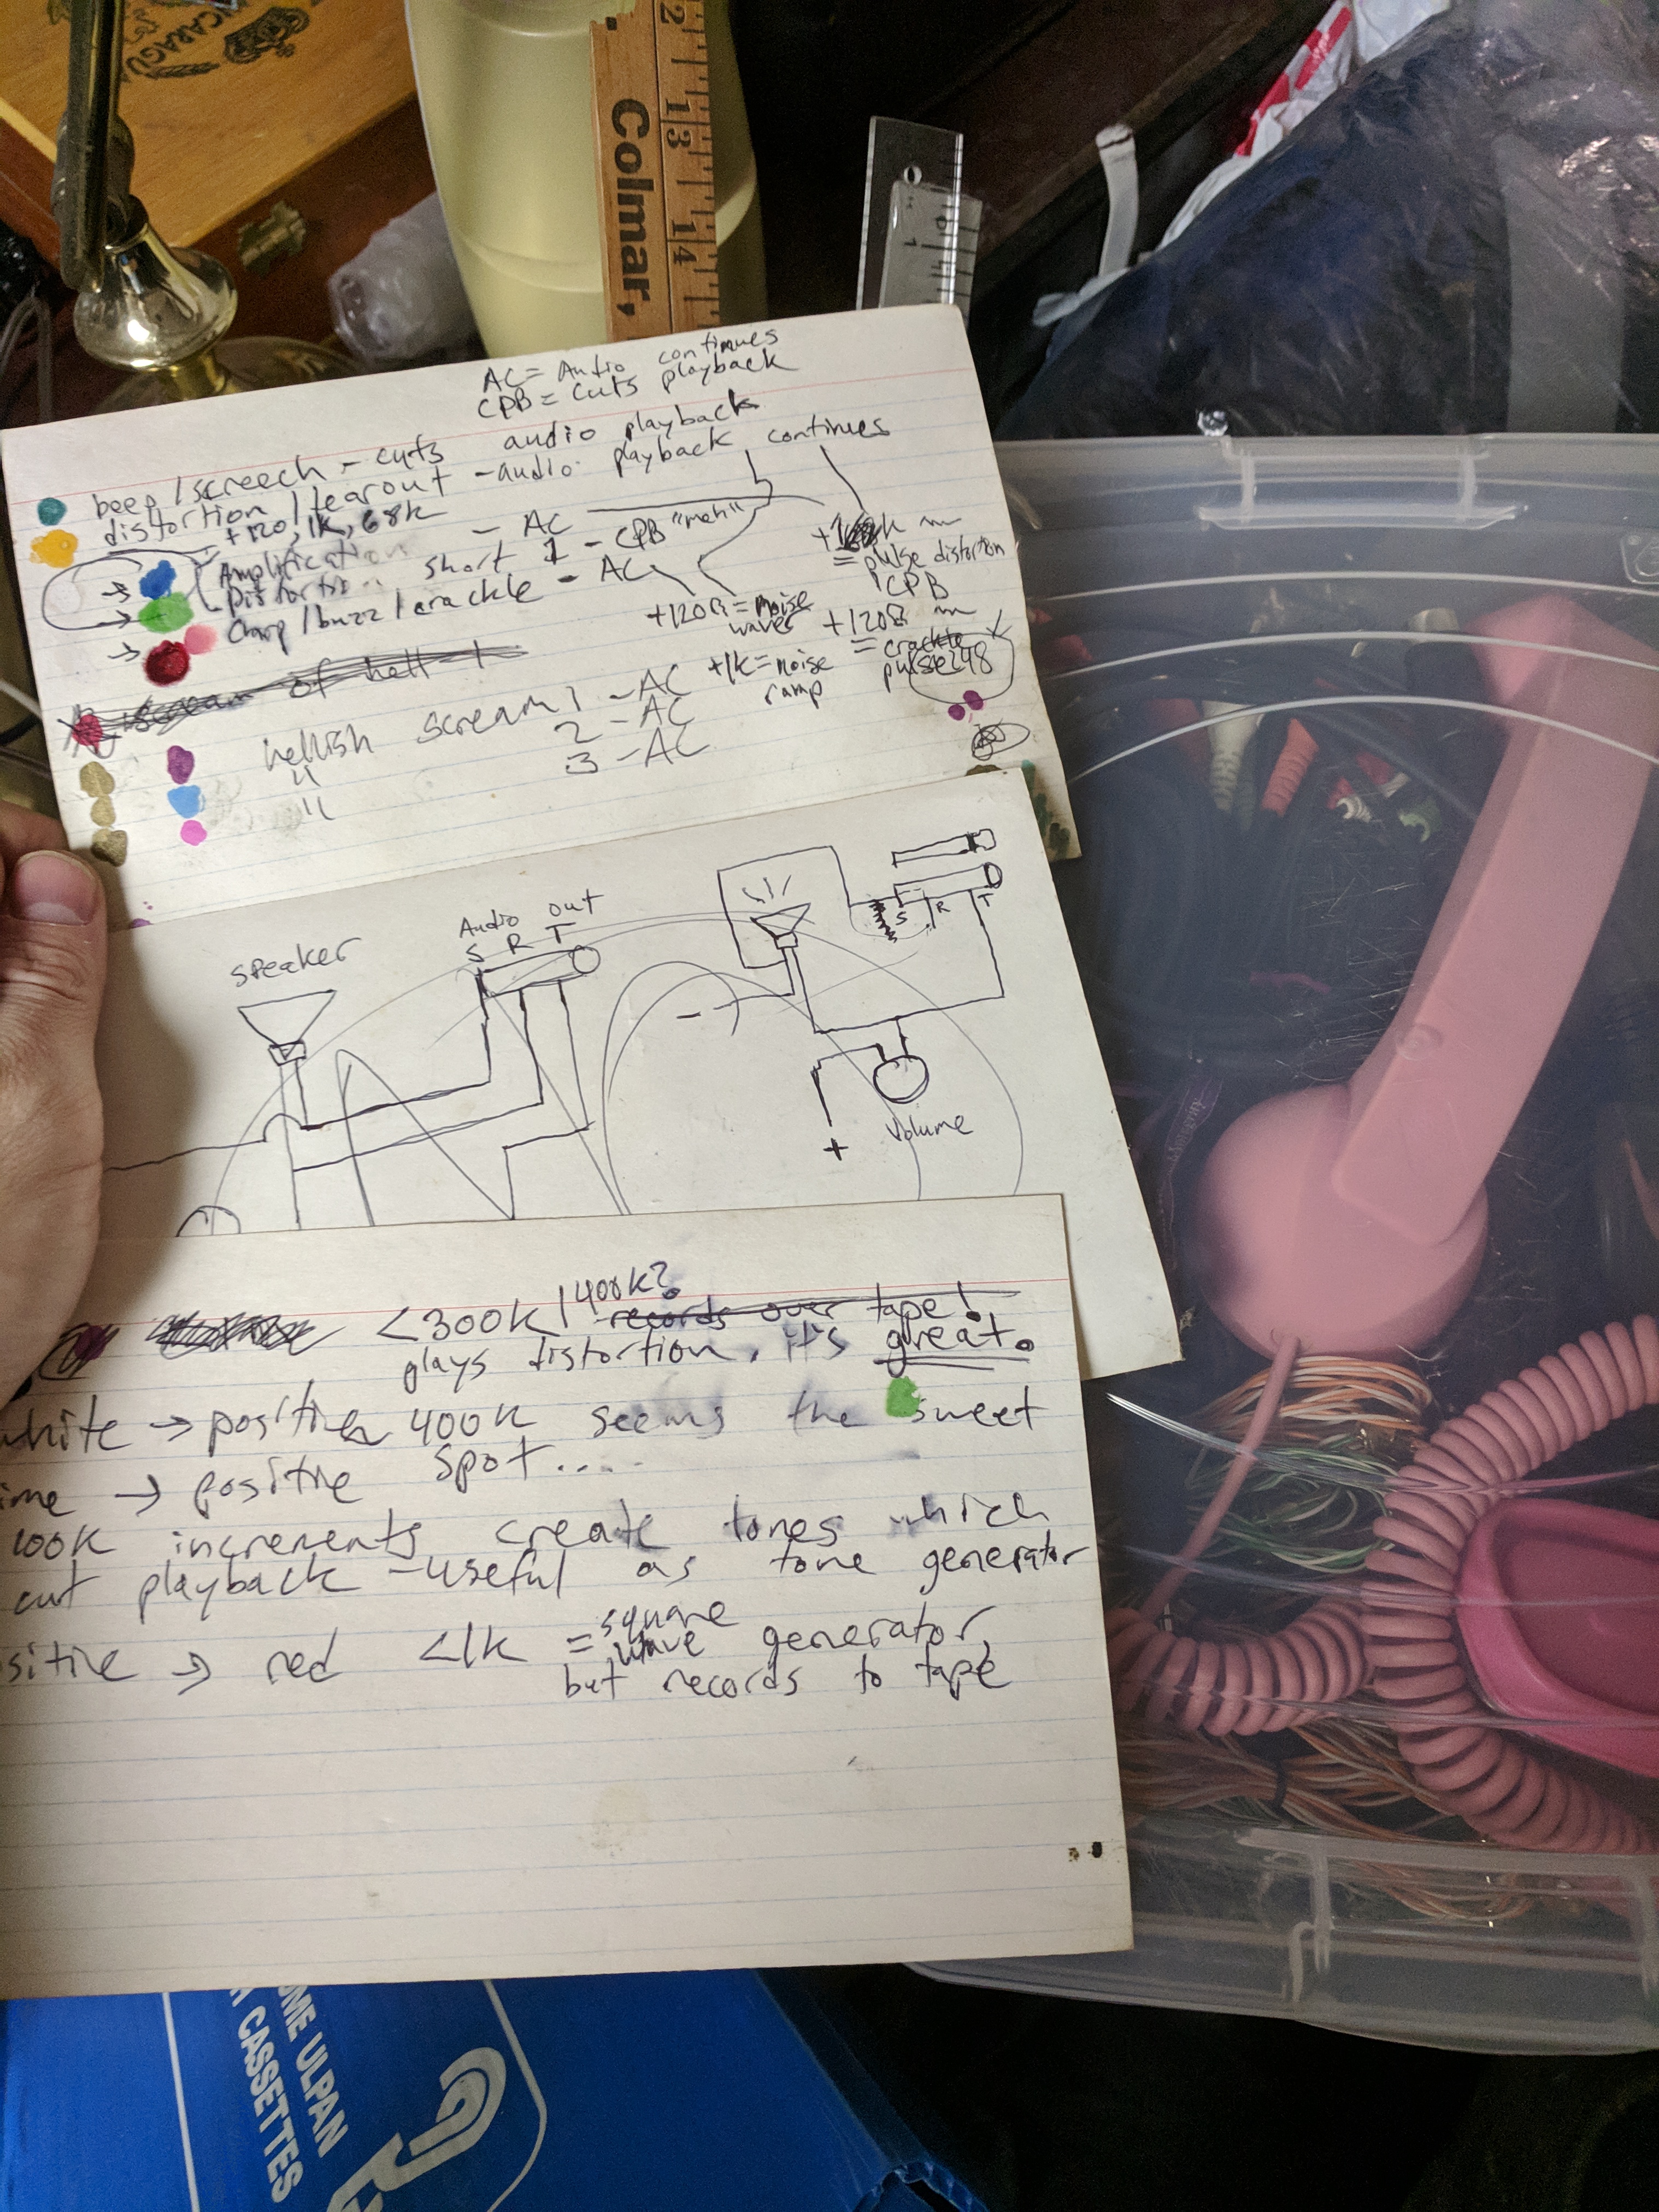 NICARAGUA
12
13
14
Colmar,
1
AC = Audio continues
CPB = cuts playback
beep/screech - cuts audio playback
distortion/tearout - audio playback continues
+120, 1K, 68K
Amplification - AC
Distortion short 1 - CPB "meh"
Chirp/buzz/crackle - AC
+120Ω = noise waves
+1K = noise ramp
= pulse distortion
CPB
+120Ω
= crackle
pulse
scream of hell 1
hellish scream 1 - AC
" 2 - AC
" 3 - AC
speaker
Audio out
S R T
S R T
-
+
Volume
<300K/400K? records over tape!
plays distortion, it's great.
white → positive 400K seems the sweet
→ positive spot....
100K increments create tones which
cut playback - useful as tone generator
→ red <1K = square wave generator,
but records to tape
ULPAN
CASSETTES